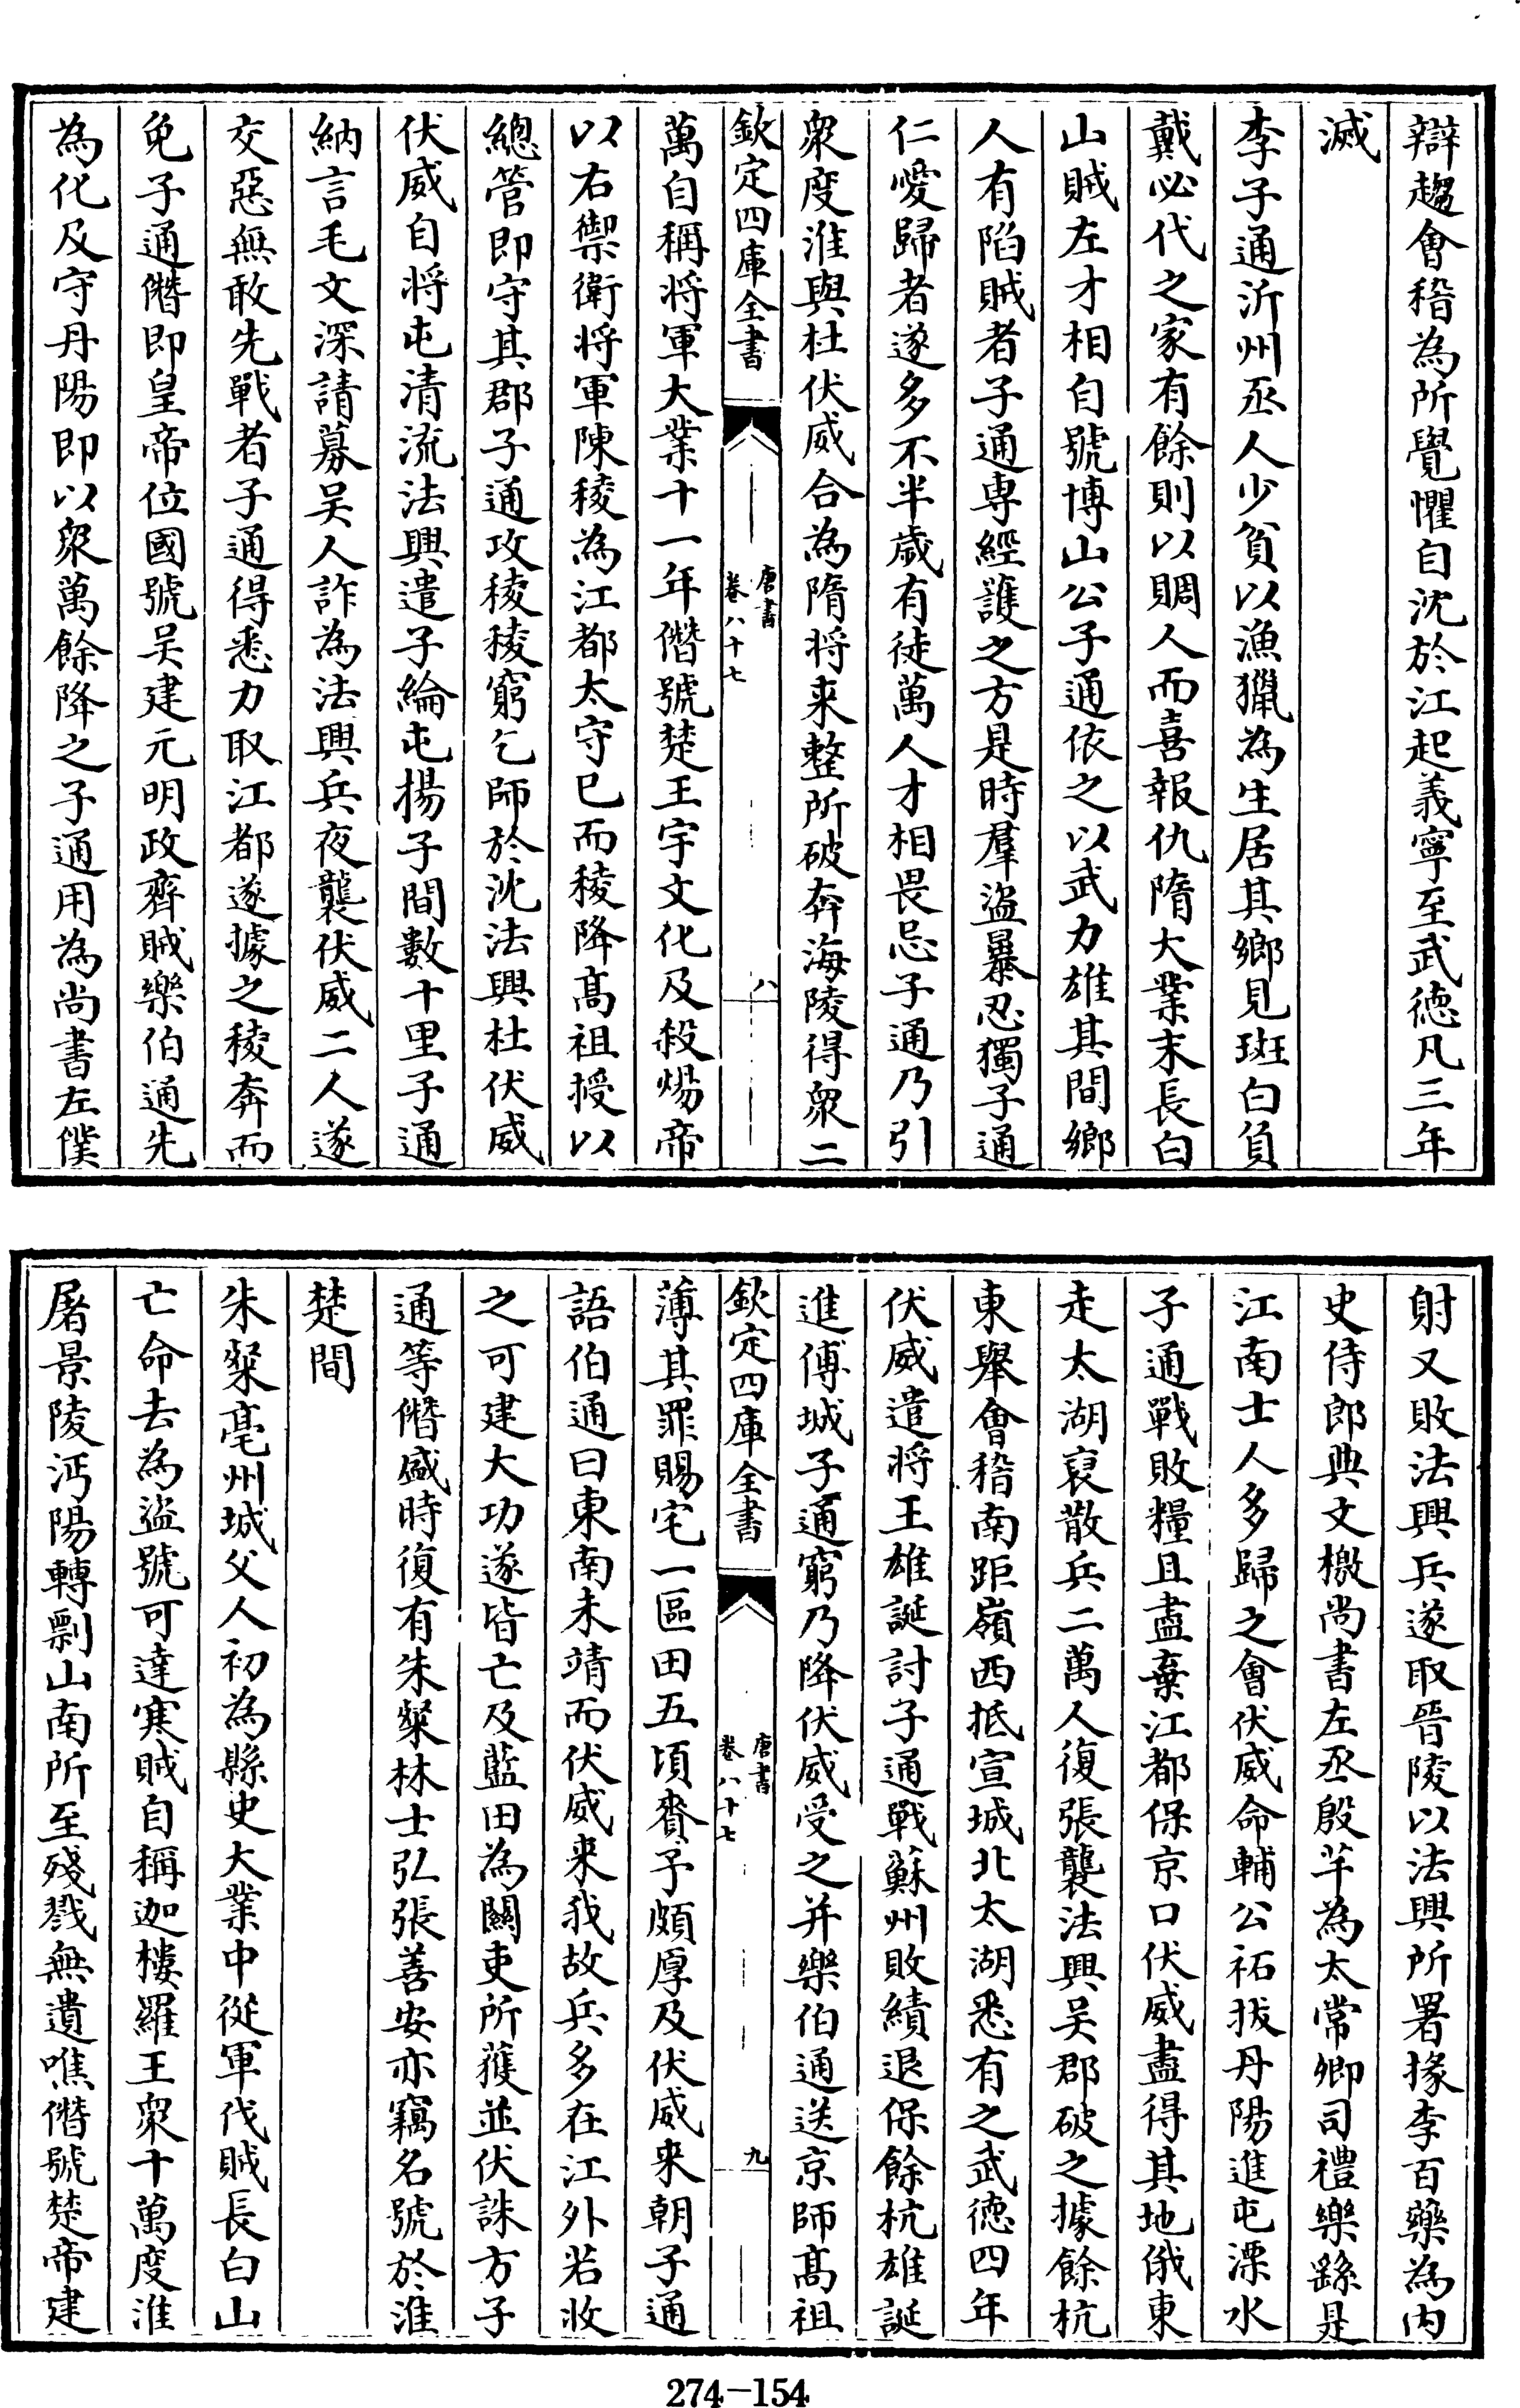 辯趨會稽為所覺懼自沈於江起義寧至武徳凡三年
滅
李子通沂州丞人少貧以漁獵為生居其鄉見斑白負
戴必代之家有餘則以賙人而喜報仇隋大業末長白
山賊左才相自號博山公子通依之以武力雄其間鄉
人有陷賊者子通専經護之方是時羣盜暴忍獨子通
仁愛歸者遂多不半歲有徒萬人才相畏忌子通乃引
衆度淮與杜伏威合為隋将来整所破奔海陵得衆二
欽定四庫全書
唐書
卷八十七
八
萬自稱将軍大業十一年僭號楚王宇文化及殺煬帝
以右禦衛将軍陳稜為江都太守已而稜降髙祖授以
總管即守其郡子通攻稜稜窮乞師於沈法興杜伏威
伏威自将屯清流法興遣子綸屯揚子間數十里子通
納言毛文深請募吴人詐為法興兵夜襲伏威二人遂
交惡無敢先戰者子通得悉力取江都遂據之稜奔而
免子通僭即皇帝位國號吴建元明政齊賊樂伯通先
為化及守丹陽即以衆萬餘降之子通用為尚書左僕
射又敗法興兵遂取晉陵以法興所署掾李百藥為内
史侍郎典文檄尚書左丞殷芊為太常卿司禮樂繇是
江南士人多歸之會伏威命輔公祏拔丹陽進屯溧水
子通戰敗糧且盡棄江都保京口伏威盡得其地俄東
走太湖裒散兵二萬人復張襲法興吴郡破之據餘杭
東舉會稽南距嶺西抵宣城北太湖悉有之武徳四年
伏威遣将王雄誕討子通戰蘇州敗績退保餘杭雄誕
進傅城子通窮乃降伏威受之并樂伯通送京師髙祖
欽定四庫全書
唐書
卷八十七
九
薄其罪賜宅一區田五頃賚予頗厚及伏威来朝子通
語伯通曰東南未靖而伏威来我故兵多在江外若收
之可建大功遂皆亡及藍田為關吏所獲並伏誅方子
通等僭盛時復有朱粲林士弘張善安亦竊名號於淮
楚間
朱粲亳州城父人初為縣史大業中從軍伐賊長白山
亡命去為盜號可達寒賊自稱迦樓羅王衆十萬度淮
屠景陵沔陽轉剽山南所至殘戮無遺噍僭號楚帝建
274-154